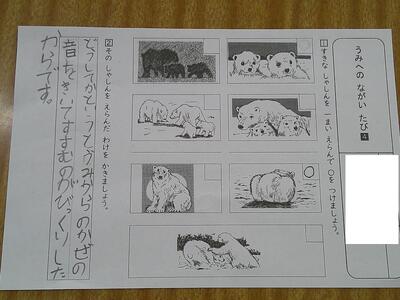 うみへの ながい たび 4
1 すきな しゃしんを 一まい えらんで ○を つけましょう。
2 その しゃしんを えらんだ わけを かきましょう。
どうしてかというとうみからのかぜの
音をきいてすすむのがびっくりした
からです。